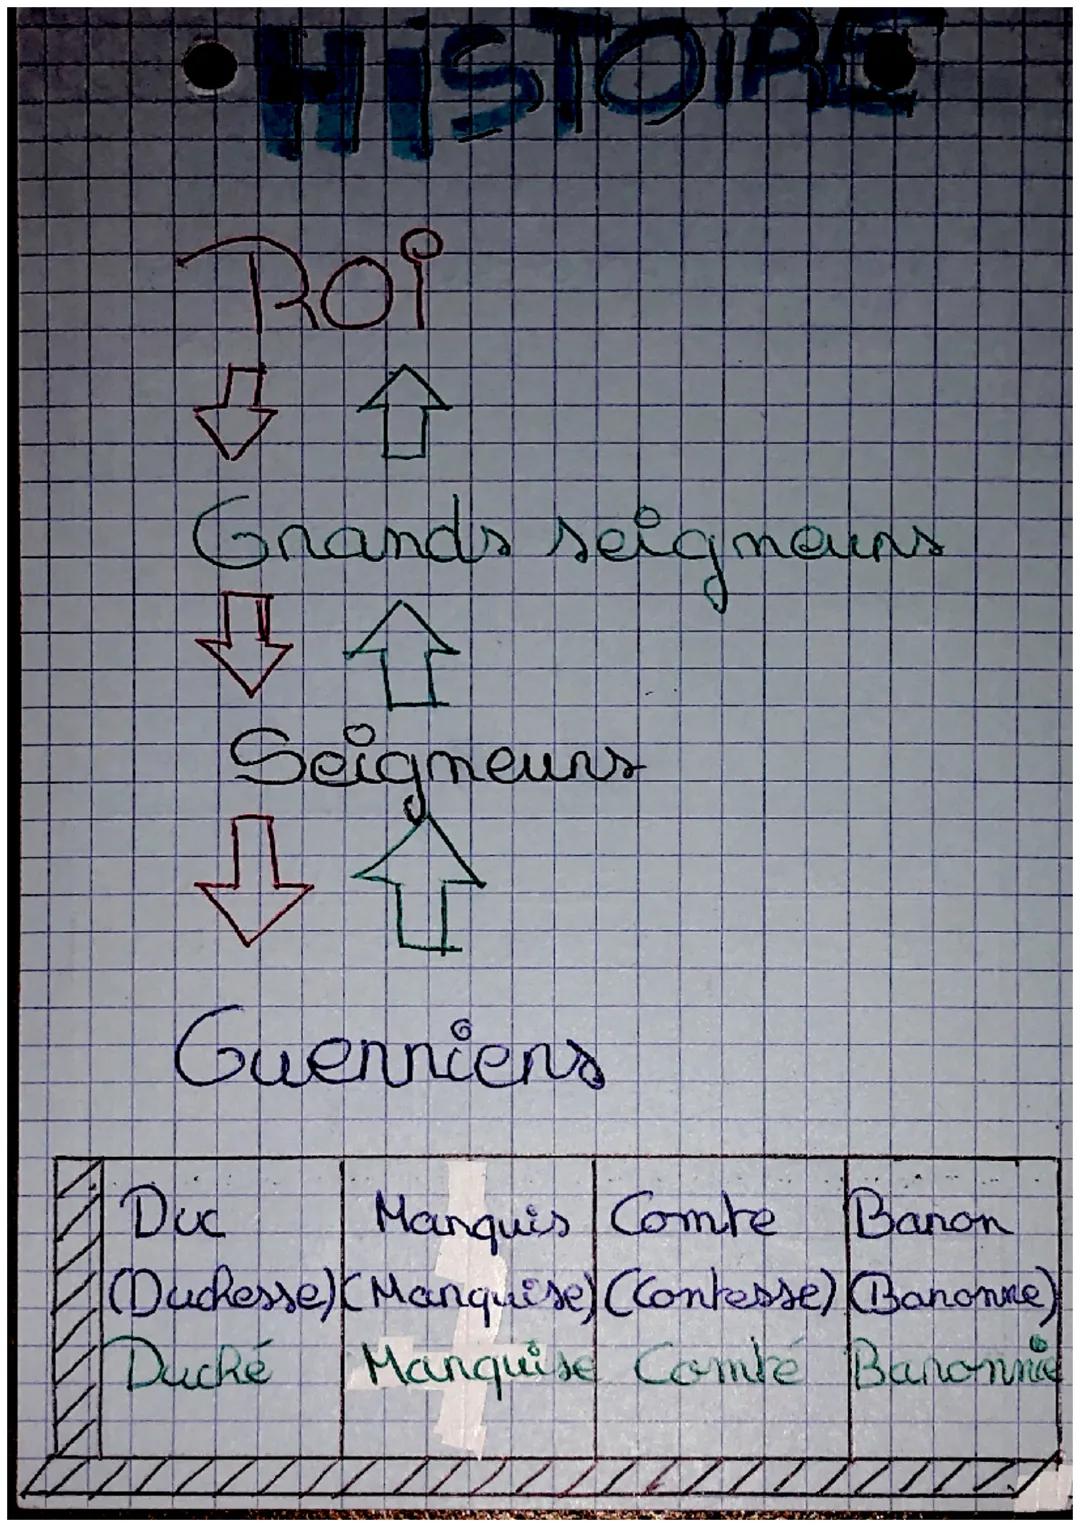 HISTOIRE
ROI
Grands seigneurs
Seigneurs
Guerriers
Duc Marquis Comte Baron
(Duchesse) (Marquise) (Comtesse) (Baronne)
Duché Marquise Comté Baronnie